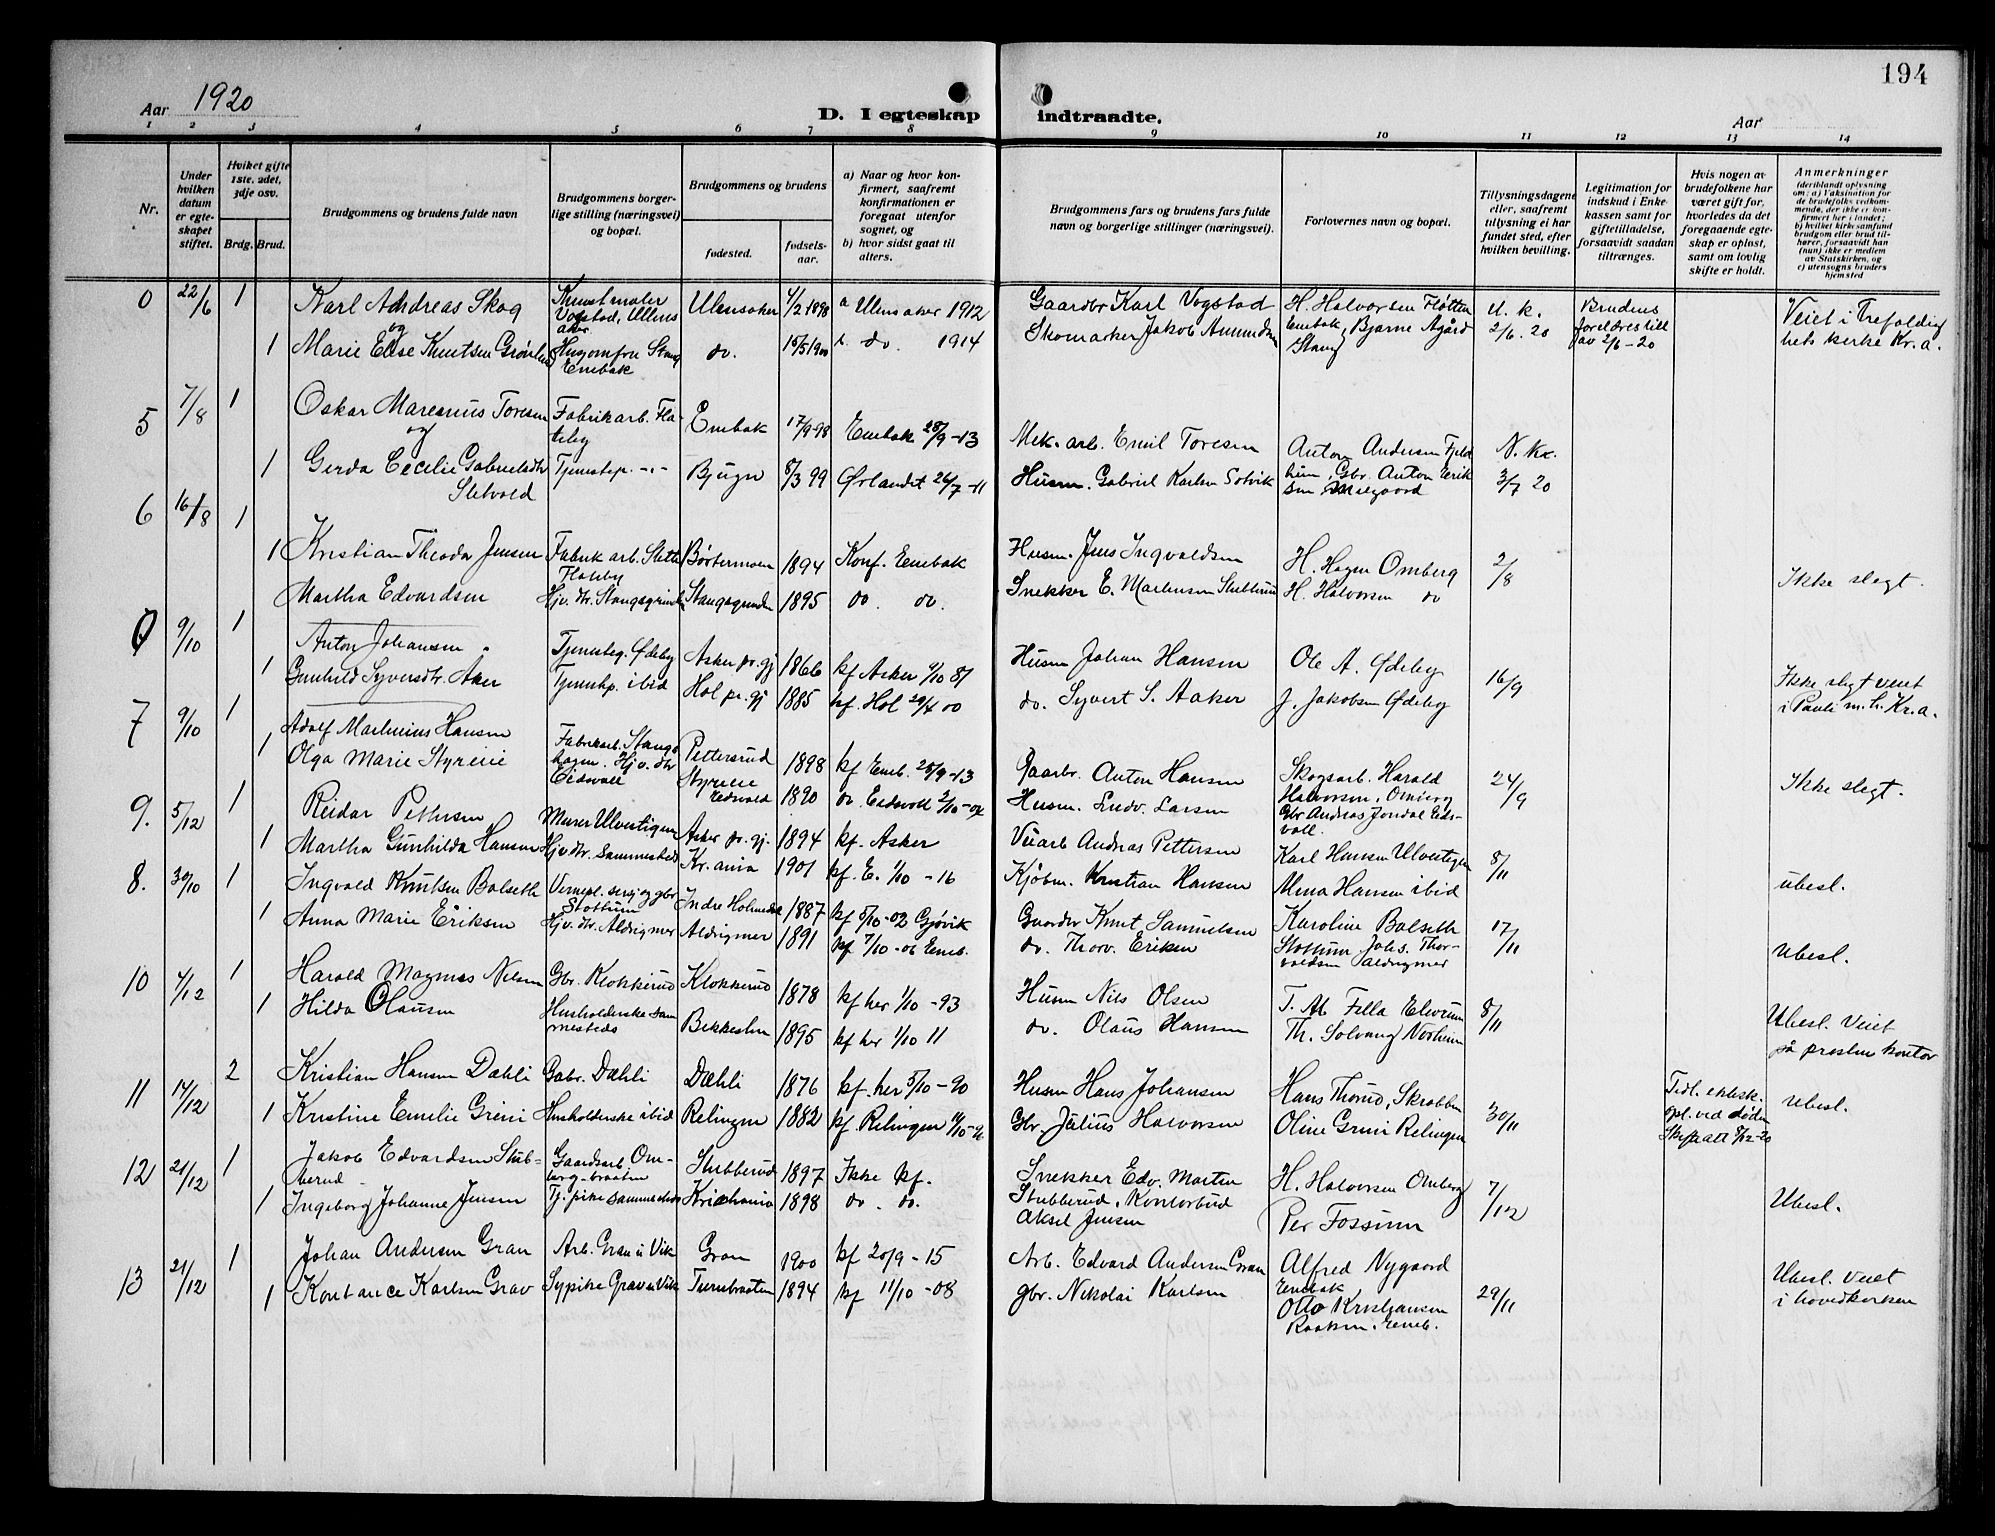 194
Aar 1920
D. I egteskap indtraadte.
Aar
1 2 3 4 5 6 7 8 9 10 11 12 13 14
Nr.
Under hvilken datum er egteskapet stiftet.
Hvilket gifte 1ste. 2det, 3dje osv.
Brdg. Brud.
Brudgommens og brudens fulde navn
Brudgommens borgerlige stilling (næringsvei) og bopæl.
Brudgommens og brudens
fødested.
fødselsaar.
a) Naar og hvor konfirmert, saafremt konfirmationen er foregaat utenfor sognet, og
b) hvor sidst gaat til alters.
Brudgommens fars og brudens fars fulde navn og borgerlige stillinger (næringsvei).
Forlovernes navn og bopæl.
Tillysningsdagene eller, saafremt tillysning ei har fundet sted, efter hvilken bevilling.
Legitimation for indskud i Enkekassen samt for giftetilladelse, forsaavidt saadan tiltrænges.
Hvis nogen av brudefolkene har været gift før, hvorledes da det foregaaende egteskap er opløst, samt om lovlig skifte er holdt.
Anmerkninger
(deriblandt oplysning om: a) Vaksination for de brudefolks vedkommende, der ikke er konfirmert her i landet; b) hvilket kirkesamfund brudgom eller brud tilhører, forsaavidt han (hun) ikke er medlem av Statskirken, og c) utensogns bruders hjemsted
0 22/6 1 Karl Andreas Skog Kunstmaler Vogstad, Ullensaker Ulensaker 4/2 1898 a Ulensaker 1912 Gaardbr Karl Vogstad H. Halvorsen Fløtten 2/6. 20 Brudens forældres till av 2/6-20 Veiet i Trefoldighets kirke Kr.a.
og
1 Marie Else Knutsen Enebak do. 15/5 1900 do. 1914 Skomaker Jakob Amundsen Enebak, Bjarne Agård Stang
5 7/8 1 Oskar Maresius Toresen Fabrikarb. Flateby Enebak 17/9-98 Enebak 28/9-13 Mek. arb. Emil Toresen Anton Andersen
og
1 Gerda Cecelie Gabrielsdtr Sletvold Tjenestep. -"- Bjugn 8/3 99 Ørlandet 26/7-11 Husm. Gabriel Karlsen Solvik Gbr. Anton Eriksen 3/7 20
6 16/8 1 Kristian Theodor Jensen Fabrik arb. Flateby Børtermoen 1894 Konf. Enebak Husm. Jens Ingvaldsen H. Hagen Omberg 2/8 Ikke slegt.
1 Martha Edvardsen Hjv. dtr. Stangsgrinden 1895 do. do. Snekker E. Martensen Stubberud H. Halvorsen do
9/10 1 Anton Johansen Tjenesteg. Ødeby Asker pr. gj 1866 kf Asker 1/10 81 Husm Johan Hansen Ole A. Ødeby 16/9 Ikke slegt veiet i Pauli m.h. Kr.a.
1 Gunhild Syversdtr. Aker Tjenestep. ibid Hol pr. gj 1885 kf. Hol 29/4 00 do. Syvert S. Aaker J. Jakobsen Ødeby
7 9/10 1 Adolf Martinius Hansen Fabrikarb. Stangshagen Pettersrud 1898 kf Eneb. 28/9-13 Gaarbr. Anton Hansen Skogsarb. Harald Halvorsen, Omberg 24/9 Ikke slegt.
1 Olga Marie Styrerie Hjv. dtr Eidsvoll Eidsvold 1890 do. Eidsvoll 2/10-04 Husm. Ludv. Larsen Gbr Andreas Jondal Eidsvoll.
9. 5/12 1 Reidar Pettersen Murer Ulvestigen Asker pr. gj. 1894 kf. Asker Veiarb Andreas Pettersen Karl Hansen Ulvestigen 8/11 ubesl.
1 Martha Gunhilda Hansen Hjv. dtr. sammesteds Kr.ania 1901 kf. E. 1/10-16 Kjøbm. Kristian Hansen Alma Hansen ibid
8. 30/10 1 Ingvald Knutsen Balseth Vernepl. sersj og gbr Stottum Indre Holmedal 1887 kf 5/10-02 Gjøvik Gaardbr Knut Samuelsen Karoline Balseth Stottum 17/11 Ubesl.
1 Anna Marie Eriksen Hjv. dtr. Aldrigmer Aldrigmer 1891 kf 7/10-06 Eneb. do. Thorv. Eriksen Johs. Thorvaldsen Aldrigmer
10 4/12 1 Harald Magnus Nilsen Gbr. Klokkerud Klokkerud 1878 kf her 1/10-93 Husm Nils Olsen T. M. Fella Elvrum 8/11 Ubesl. Veiet på prestens kontor
1 Hilda Olausen Husholderske sammesteds Bekkestun 1895 kf her 1/10 11 do. Olaus Hansen Th. Solvang Norheim
11 14/12 2 Kristian Hansen Dæhli Gabr. Dæhli Dæhli 1876 kf. her 5/10-90 Husm Hans Johansen Hans Thorud, Skrabben 30/11 Tidl. ektesk. opl. ved døden Ubesl.
1 Kristine Emelie Greni Husholderske ibid Relingen 1882 kf. Relingen Gbr. Julius Halvorsen Oline Greni Relingen
12 21/12 1 Jakob Edvardsen Stubberud Gaardsarb. Omberg-braaten Stubberud 1897 Ikke kf. Snekker Edv. Marten Stubberud, Kontorbud H. Halvorsen Omberg 7/12 Ubesl.
1 Ingeborg Johanne Jensen Tj. pike sammesteds Kristiania 1898 do. do. Aksel Jensen Per Fossum
13 21/12 1 Johan Andersen Gran Arb. Grav i Vik Gran 1900 kf 20/9-15 Arb. Edvard Andersen Gran Alfred Nygaard Enebak 29/11 Ubesl. veiet i hovedkirken
1 Konstance Karlsen Grav Sypike Grav i Vik Turnbraaten 1894 kf 11/10-08 gbr. Nikolai Karlsen Otto Kristiansen Eneb.